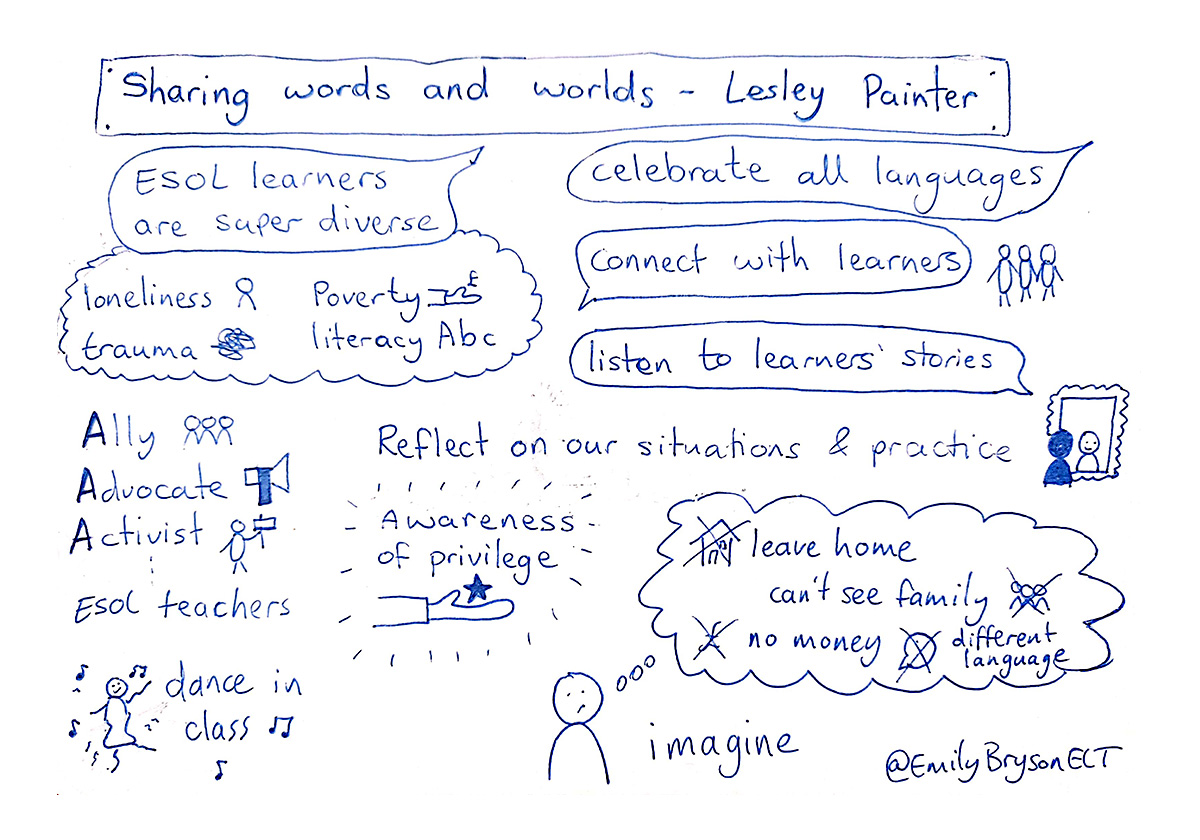 Sharing words and worlds - Lesley Painter
ESOL learners
are super diverse
loneliness
Poverty £
trauma
literacy Abc
celebrate all languages
connect with learners
listen to learners' stories
Ally
Advocate
Activist
ESOL teachers
Reflect on our situations & practice
Awareness
of privilege
leave home
can't see family
no money
different
language
dance in
class
imagine
@EmilyBrysonELT